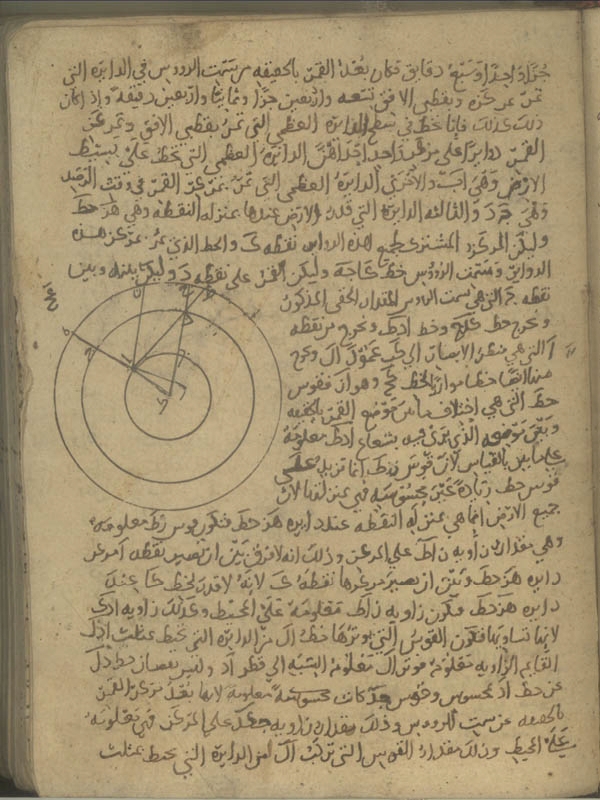 جزءا واحدا وسبع دقايق فكان بعد القمر بالحقيقه من سمت الرووس في الدايره التي
تمر بمركزه وبقطبي الافق تسعه واربعين جزءا وثمانيا واربعين دقيقه واذا كان
ذلك كذلك فانا نخط في سطح الدايره العظمي التي تمر بقطبي الافق وبمركز
القمر دوايرا علي مركز واحد احداهن الدايره العظمي التي تخط علي بسيط
الارض وهي اب والاخري الدايره العظمي التي تمر بمركز القمر في وقت الرصد
وهي جد والثالثه الدايره التي قدر الارض عندها بمنزله النقطه وهي هزحط
وليكن المركز المشترك لجميع هذه الدواير نقطه ك والخط الذي يمر بمركز هذه
الدواير وسمت الرووس خط كاجه وليكن القمر علي نقطه د وليكن بينه وبين
نقطه ج التي هي سمت الرووس المقدار الحقي المذكور
ونخرج خط كدح وخط ادط ونخرج من نقطه
ا التي هي منظر الابصار الي كب عمود ال ونخرج
منها ايضا خطا موازيا لخط كح وهو از فقوس
حط التي هي اختلاف ما بين موضع القمر بالحقيقه
وبين موضعه الذي يري فيه بشعاع ادط معلومه
علي ما بين بالقياس لان قوس زحط انما تزيد علي
قوس حط زياده غير محسوسه في عمل لنا لان
جميع الارض انما هي بمنزله النقطه عند دايره هزحط فتكون قوس زط معلومه
وهي مقدار زاويه زاط علي المركز وذلك انه لا فرق بين ان نصير نقطه ا مركز
دايره هزحط وبين ان نصير مركزها نقطه ك لانه لا قدر لخط كا عند
دايره هزحط فتكون زاويه زاط معلومه علي المحيط وكذلك زاويه ادك
لانها تساويها فتكون القوس التي يوترها خط ال من الدايره التي تحيط بمثلث ادل
القايم الزاويه معلومه فوتر ال معلوم النسبه الي قطر اد وليس نقصان خط دل
عن خط اد بمحسوس وقوس جد كانت محسوسة معلومة لانها بعد مركز القمر
بالحقيقه عن سمت الرووس وذلك مقدار زاويه جكد علي المركز فهي معلومه
علي المحيط وذلك مقدار القوس التي تركب ال من الدايره التي تحيط بمثلث